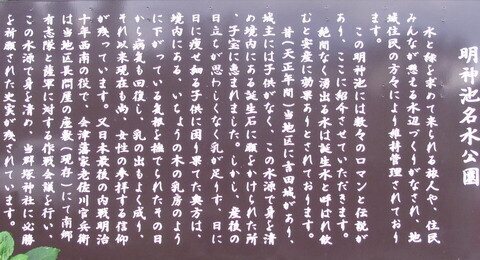 明神池名水公園
水と緑を求めて来られる旅人や、住民
みんなが憩える水辺づくりがなされ、地
域住民の方々により維持管理されており
ます。
この明神池には数々のロマンと伝説が
あり、ここに紹介させていただきます。
絶間なく湧出る水は誕生水と呼ばれ飲
むと安産に効果ありとされております。
昔（天正年間）当地区に吉田城があり、
城主には子供がなく、この水源で身を清
め境内にある誕生石に願をかけられた所
、子宝に恵まれました。しかし、産後の
日立ちが思わしくなく乳が足りず、日に
日に痩せ細る子供に困り果てた奥方は、
境内にある、いちょうの木の乳房のよう
に下がっている気根を撫でられたその日
から病気も回復し、乳の出もよく成り、
それ以来現在も尚、女性の参拝する信仰
が残っています。又日本最後の内戦明治
十年西南の役で、会津藩家老佐川官兵衛
は当地区長問屋の座敷（現存）にて南郷
有志隊と薩軍に対する作戦会議を行い、
この水源で身を清め、吉群塚神社に必勝
を祈願された史実が残されています。